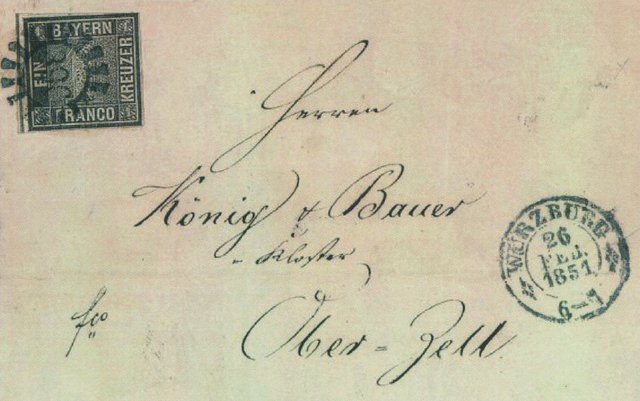 BAYERN
EIN
KREUZER
FRANCO
Herren
König & Bauer
Kloster
Ober-Zell
fco
WÜRZBURG
26
FEB.
1851
6-7